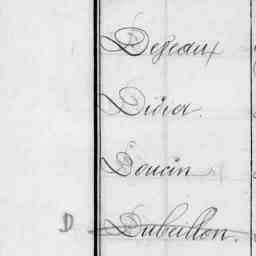 Dejeaux
Didier.
Doucin
D Dubeillon.